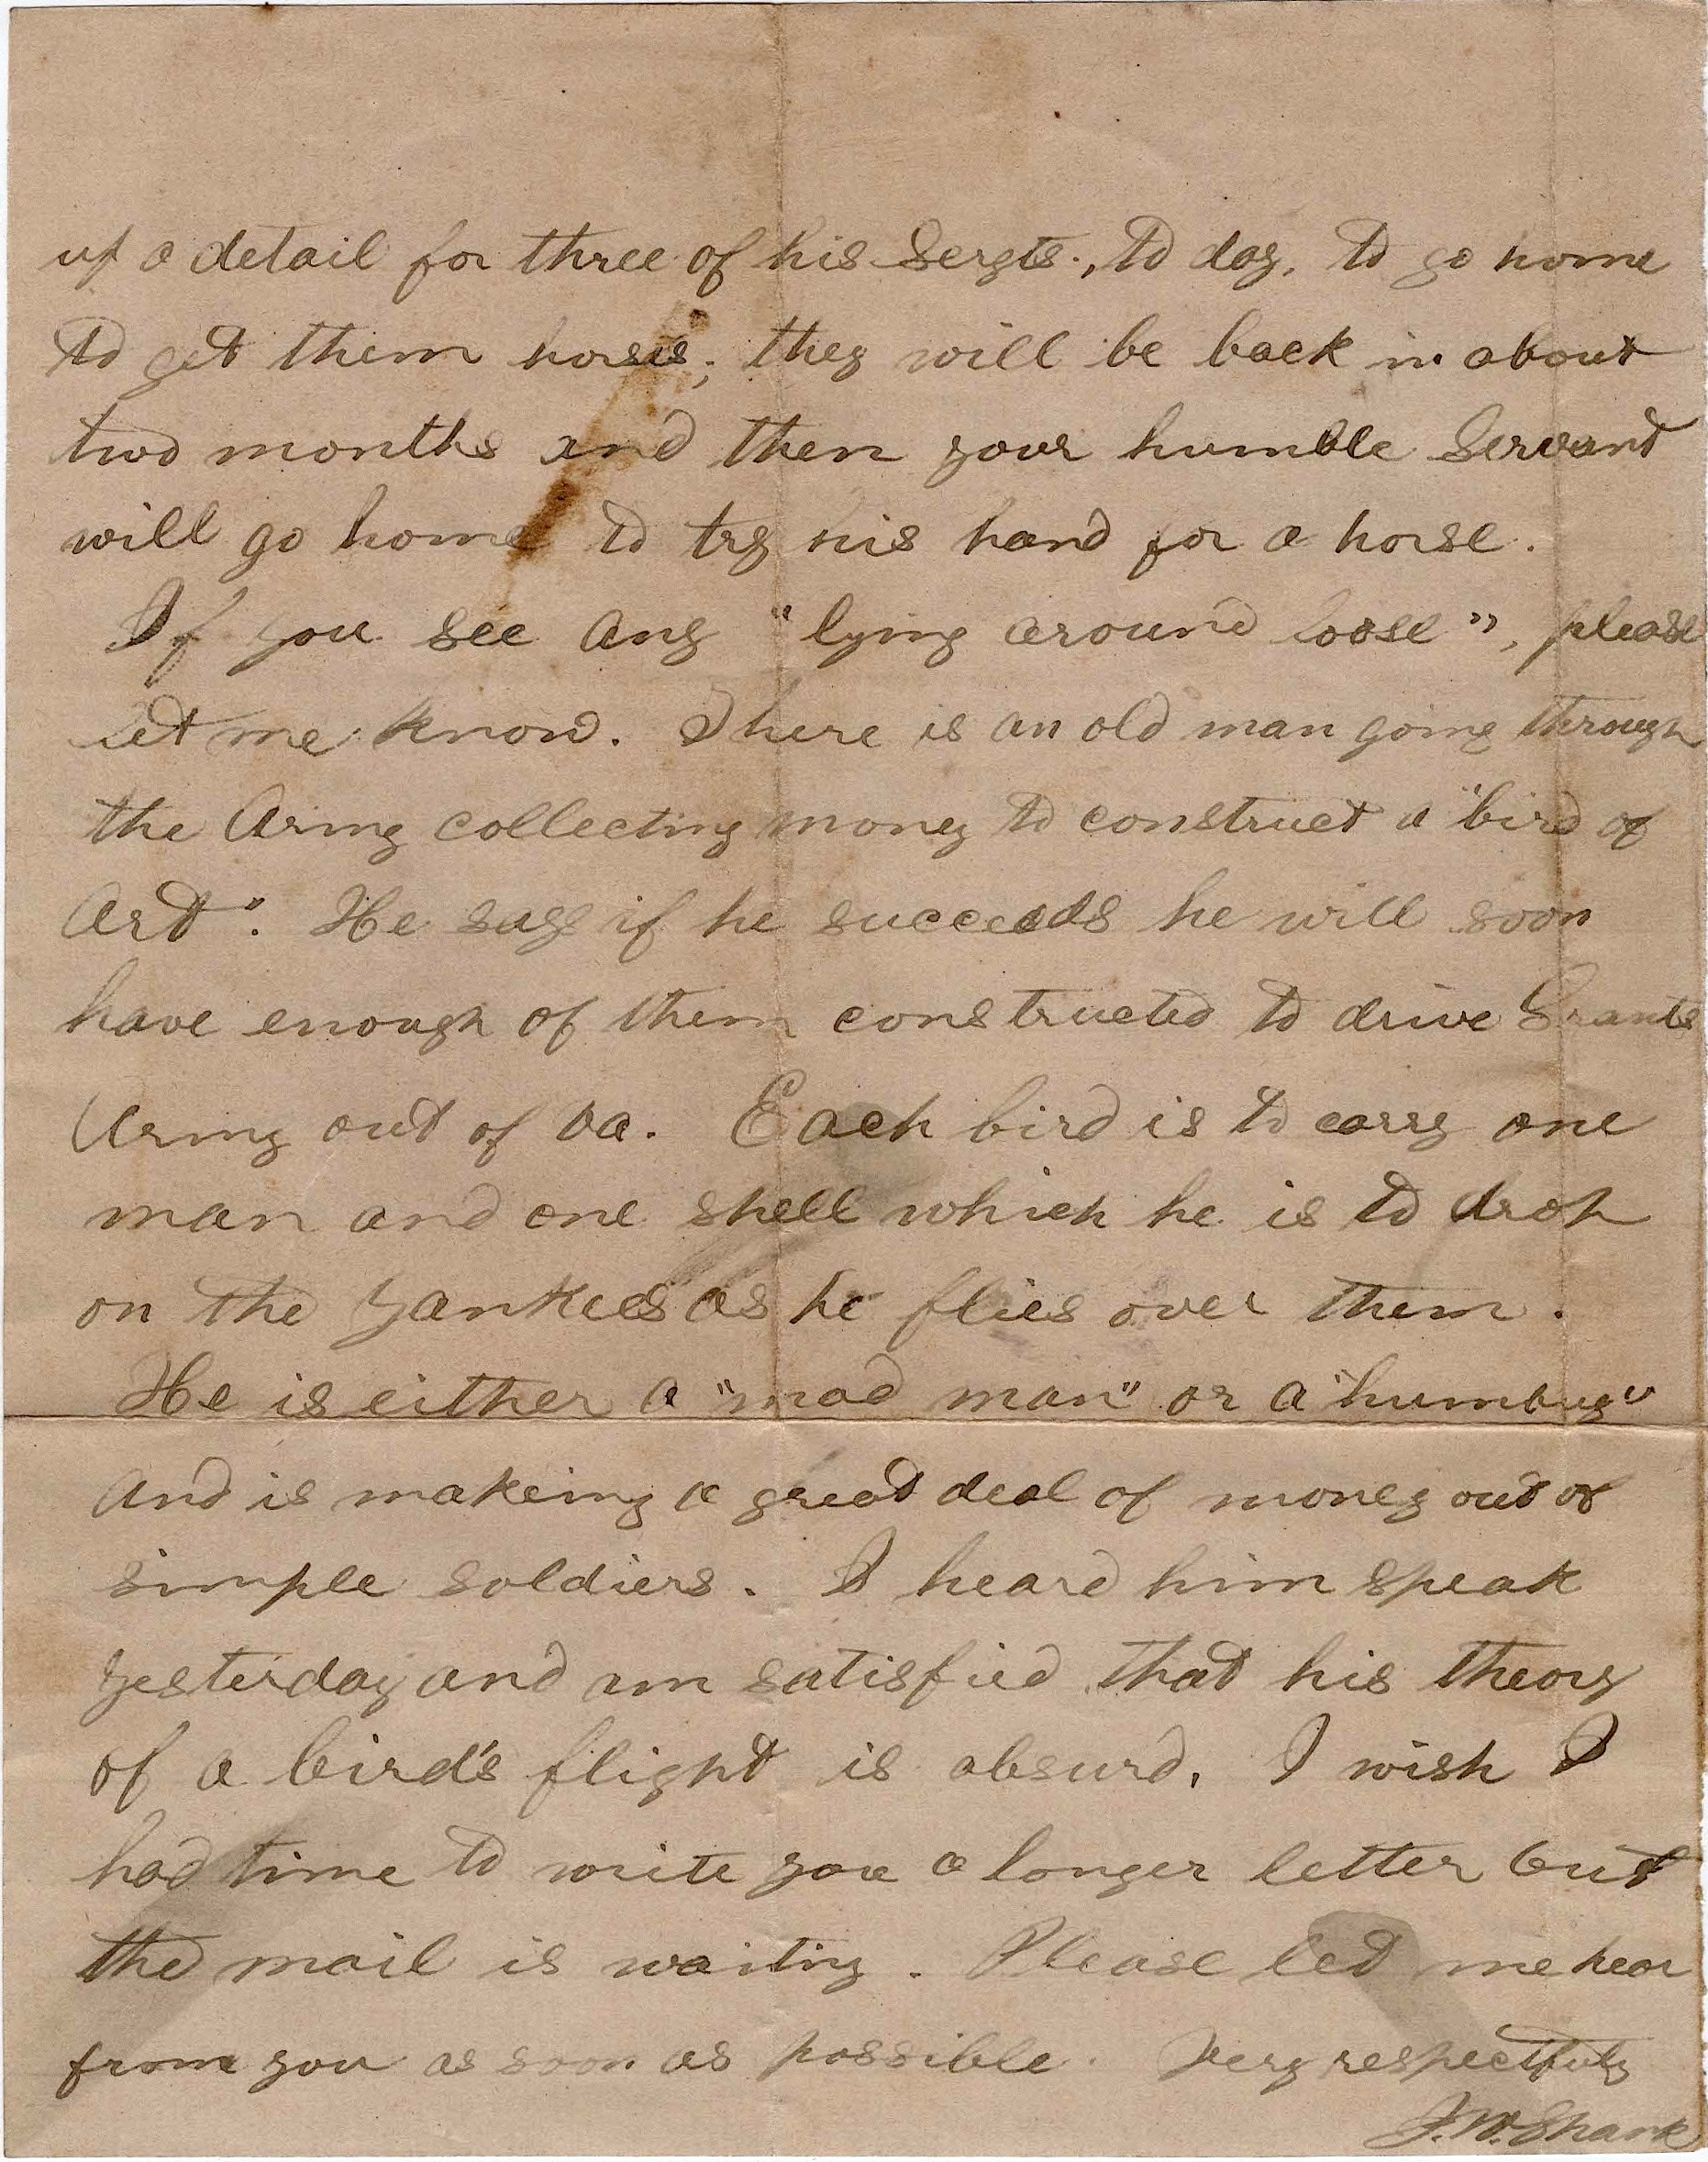 up a detail for three of his Sergts., to day, to go home
to get them horses; they will be back in about
two months and then your humble Servant
will go home to try his hand for a horse.
If you see any "lying around loose", please
let me know. There is an old man going through
the Army collecting money to construct a "bird of
Art". He says if he succeeds he will soon
have enough of them constructed to drive Grants
Army out of Va. Each bird is to carry one
man and one shell which he is to drop
on the Yankees as he flies over them.
He is either a "mad man" or a "humbug"
and is makeing a great deal of money out of
simple soldiers. I heard him speak
yesterday and am satisfied that his theory
of a bird's flight is absurd. I wish I
had time to write you a longer letter but
the mail is waiting. Please let me hear
from you as soon as possible. Very respectfuly
J. W. Shank